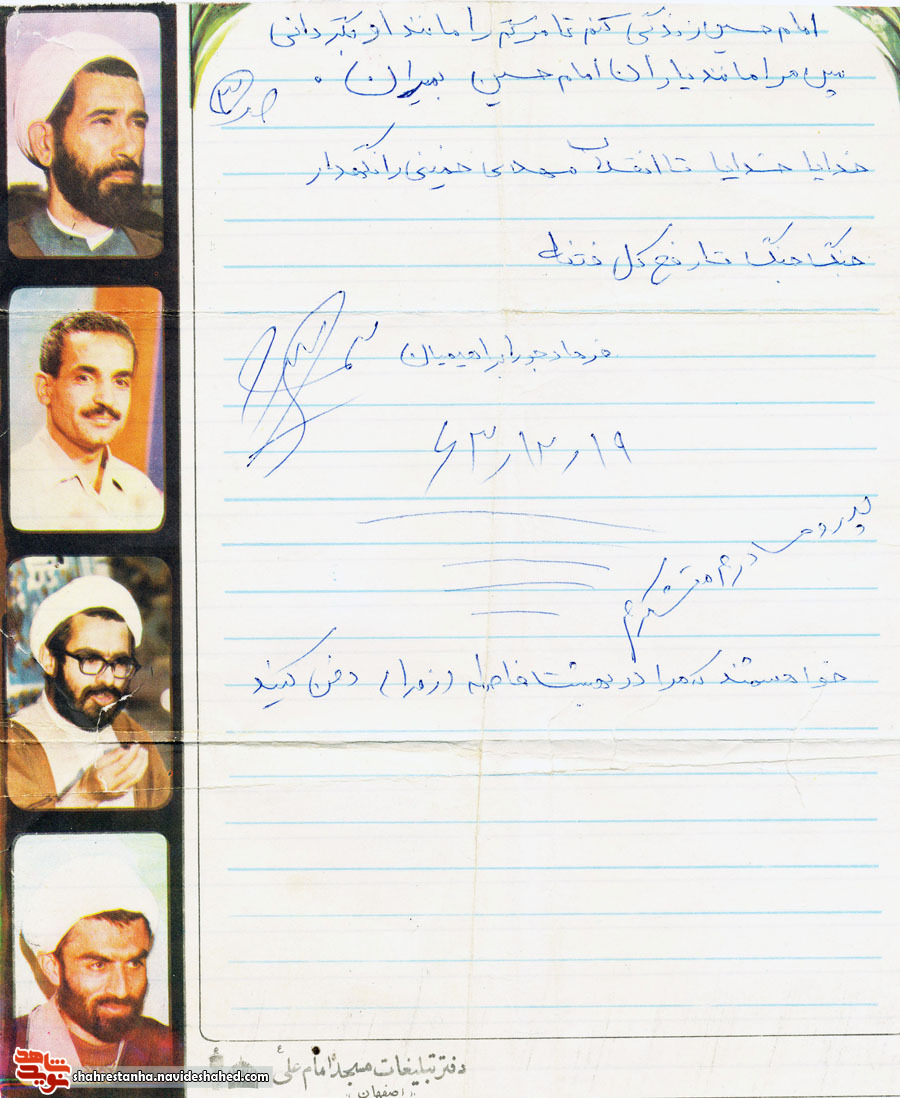 امام حسین زندگی کنم تا مرگم را مانند او بگردانی
پس مرا مانند یاران امام حسین بمیران .
ص ۳
خدایا خدایا تا انقلاب مهدی خمینی را نگهدار
جنگ جنگ تا رفع کل فتنه
فرهاد جورابراهیمیان
۶۳/۱۲/۱۹
پدر و مادرم متشکرم
خواهشمند که مرا در بهشت فاطمه ورزم دفن کنید
دفتر تبلیغات مسجد امام علی ع
اصفهان
نوید شاهد
shahrestanha.navideshahed.com